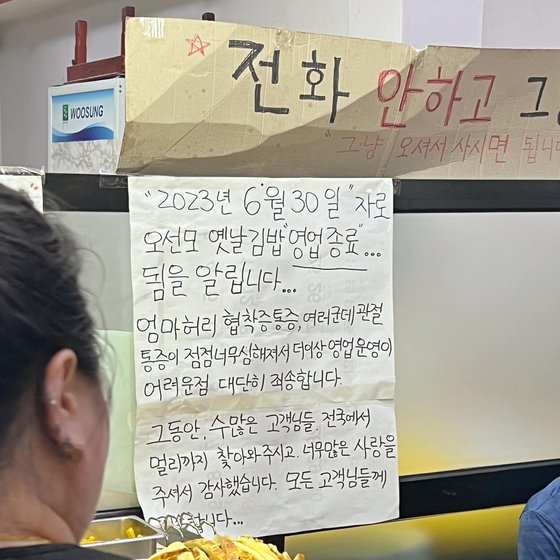 WOOSUNG
전화 안하고
"그냥 오셔서 사시면 됩니다
"2023년 6월 30일" 자로
오선모 옛날김밥 "영업종료"...
됨을 알립니다...
엄마허리 협착증통증, 여러군데 관절
통증이 점점너무심해져서 더이상 영업운영이
어려운점 대단히 죄송합니다.
그동안, 수많은 고객님들, 전국에서
멀리까지 찾아와주시고. 너무많은 사랑을
주셔서 감사했습니다. 모든 고객님들께